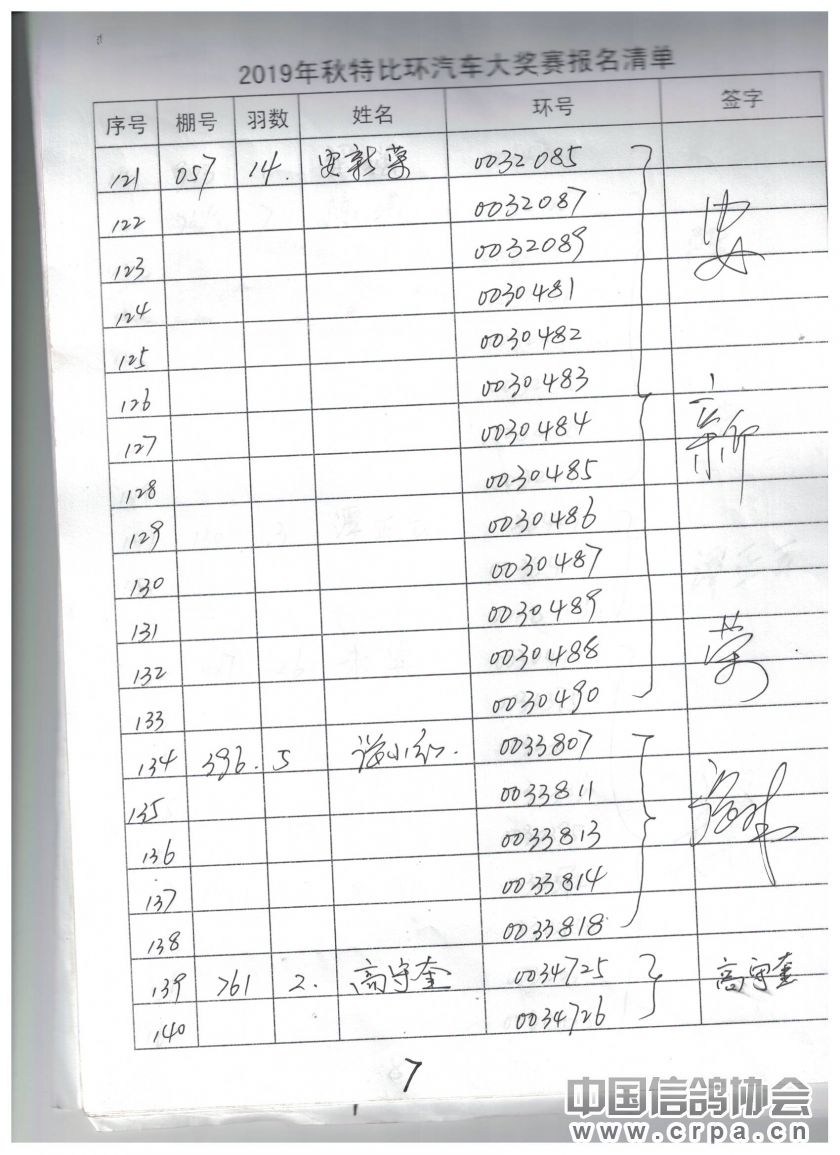 2019年秋特比环汽车大奖赛报名清单
序号 棚号 羽数 姓名 环号 签字
121 057 14. 安新荣 0032085
122 0032087
123 0032089
124 0030481
125 0030482
126 0030483
127 0030484
128 0030485
129 0030486
130 0030487
131 0030489
132 0030488
133 0030490
134 396. 5 小红. 0033807
135 0033811
136 0033813
137 0033814
138 0033818
139 761 2. 高守奎 0034725 高守奎
140 0034726
7
中国信鸽协会
www.crpa.cn